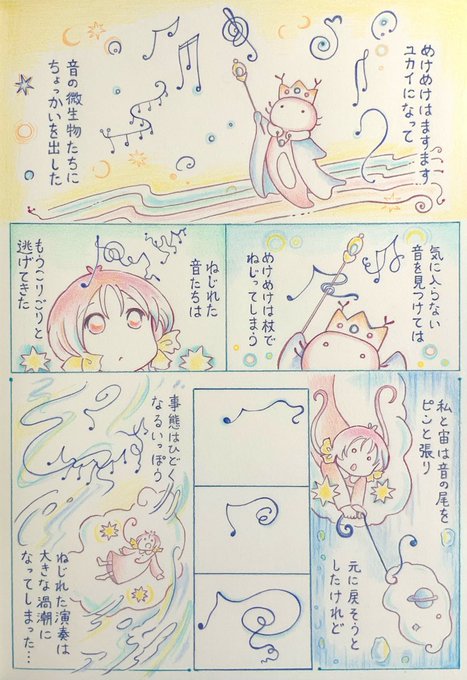 めけめけはますます
ユカイになって
音の微生物たちに
ちょっかいを出した
気に入らない
音を見つけては
めけめけは杖で
ねじってしまう
ねじれた
音たちは
もうこりごりと
逃げてきた
私と宙は音の尾を
ピンと張り
元に戻そうと
したけれど
事態はひどく
なるいっぽう
ねじれた演奏は
大きな渦潮に
なってしまった…